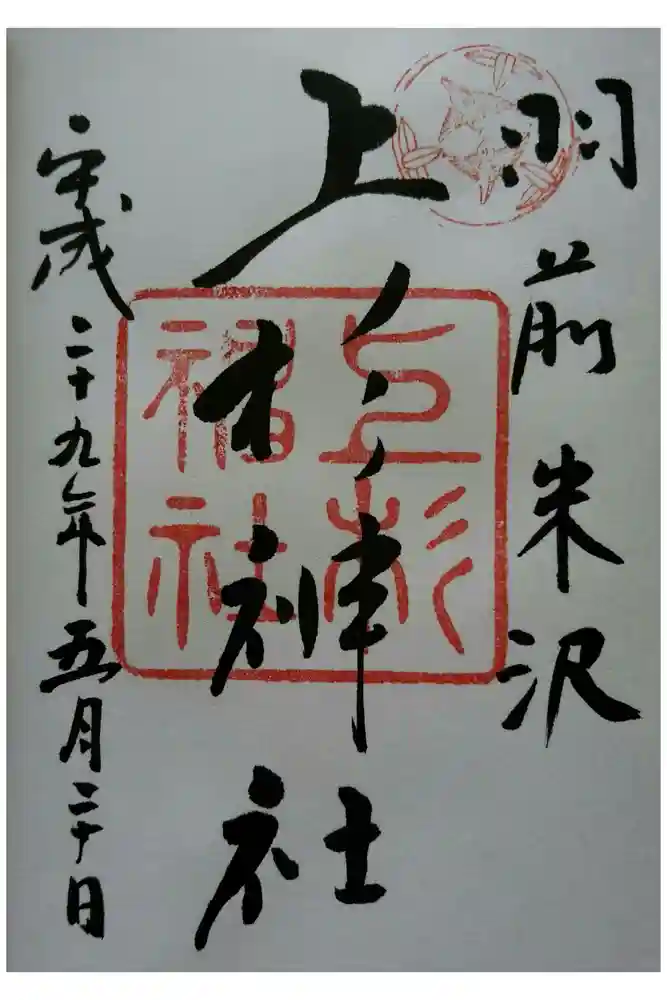 羽前米沢
上杉神社
平成二十九年五月二十日
上杉
神社